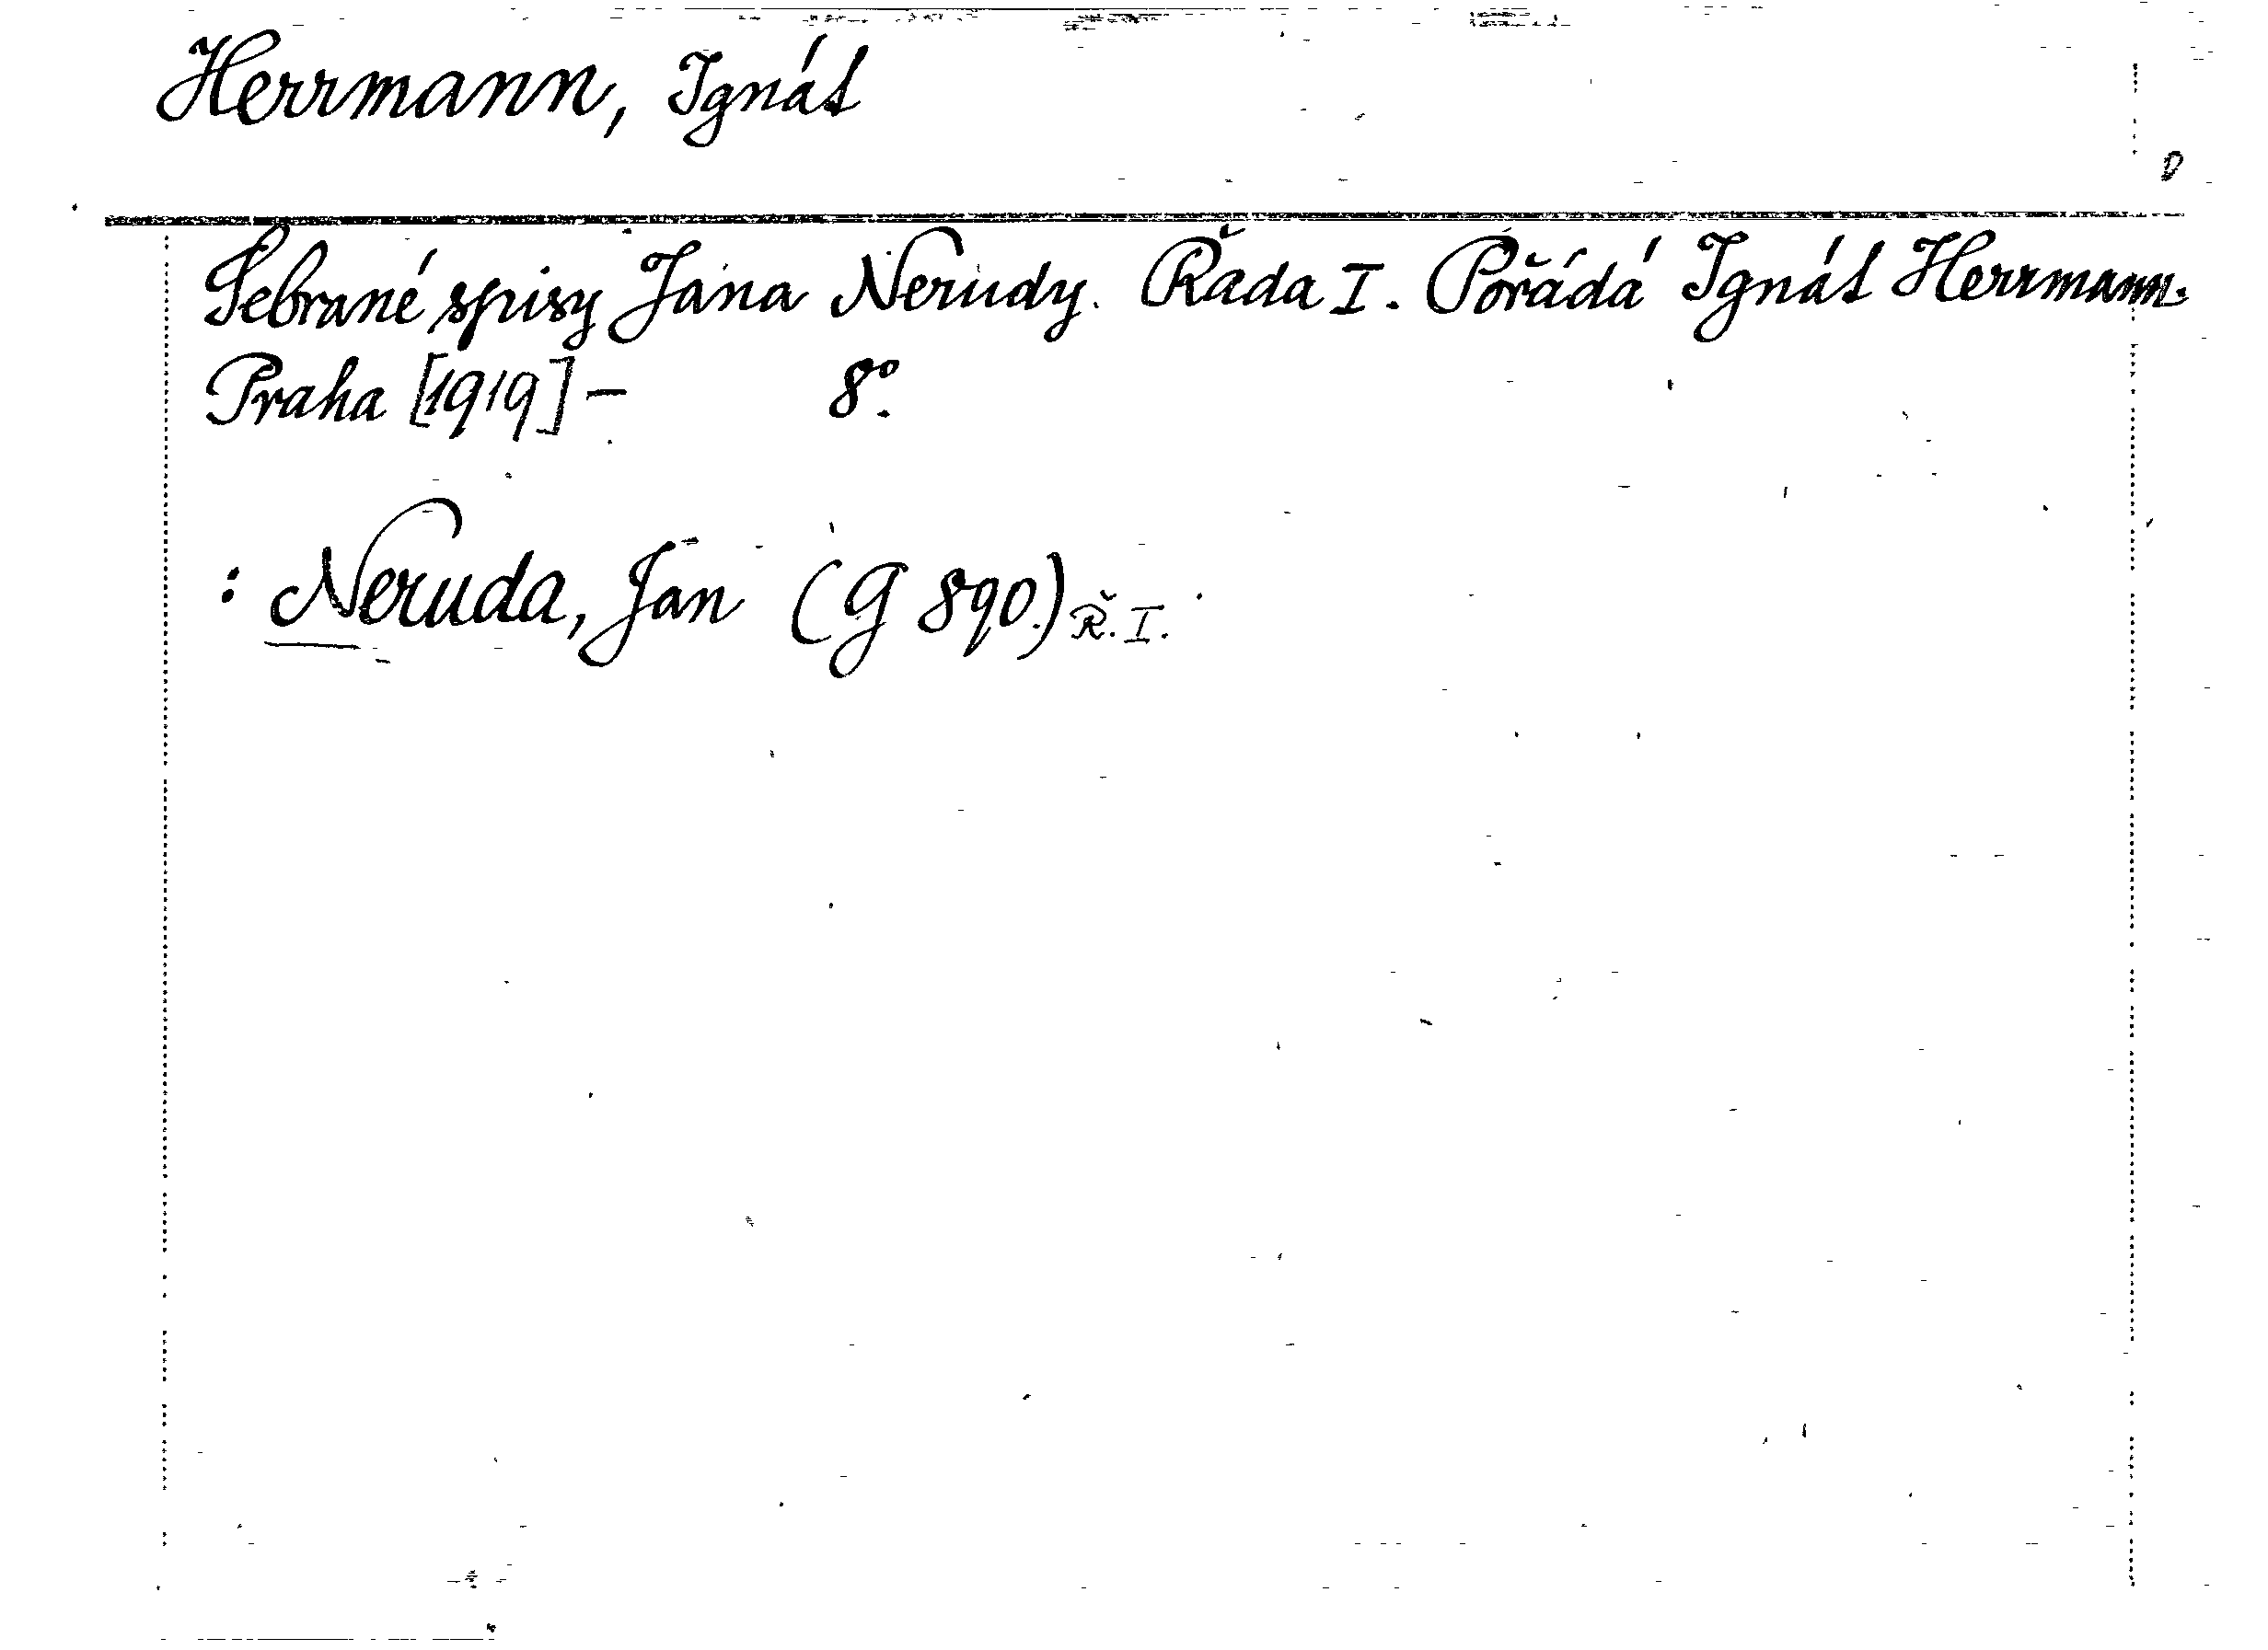 Herrmann, Ignát
Sebrané spisy Jana Nerudy. Řada I. Pořádá Ignát Herrmann.
Praha [1919] – 8°.
: Neruda, Jan (G 890.) Ř. I.